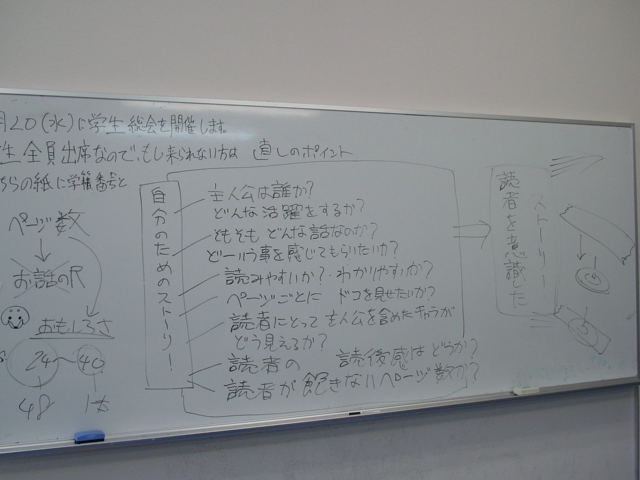 月20(水)に学生総会を開催します。
生 全員出席なので、もし来られない方は
ちらの紙に学籍番号と
直しのポイント
ページ数
お話の尺
おもしろさ
24〜40
48 1本
自分のためのストーリー!
主人公は誰か?
どんな活躍をするか?
そもそも どんな話なのか?
どーいう事を感じてもらいたいか?
読みやすいか?・わかりやすいか?
ページごとに ドコを見せたいか?
読者にとって 主人公を含めたキャラが
どう見えるか?
読者の 読後感はどうか?
読者が飽きないページ数か?
読者を意識した
ストーリー